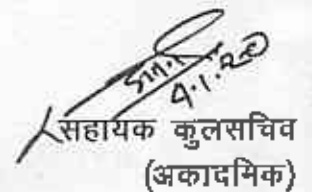 9.1.20
सहायक कुलसचिव
(अकादमिक)